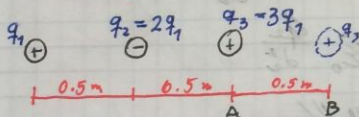 q₁ q₂=2q₁ q₃=3q₁
+ − + + q₃
0.5m 0.5m 0.5m
A B